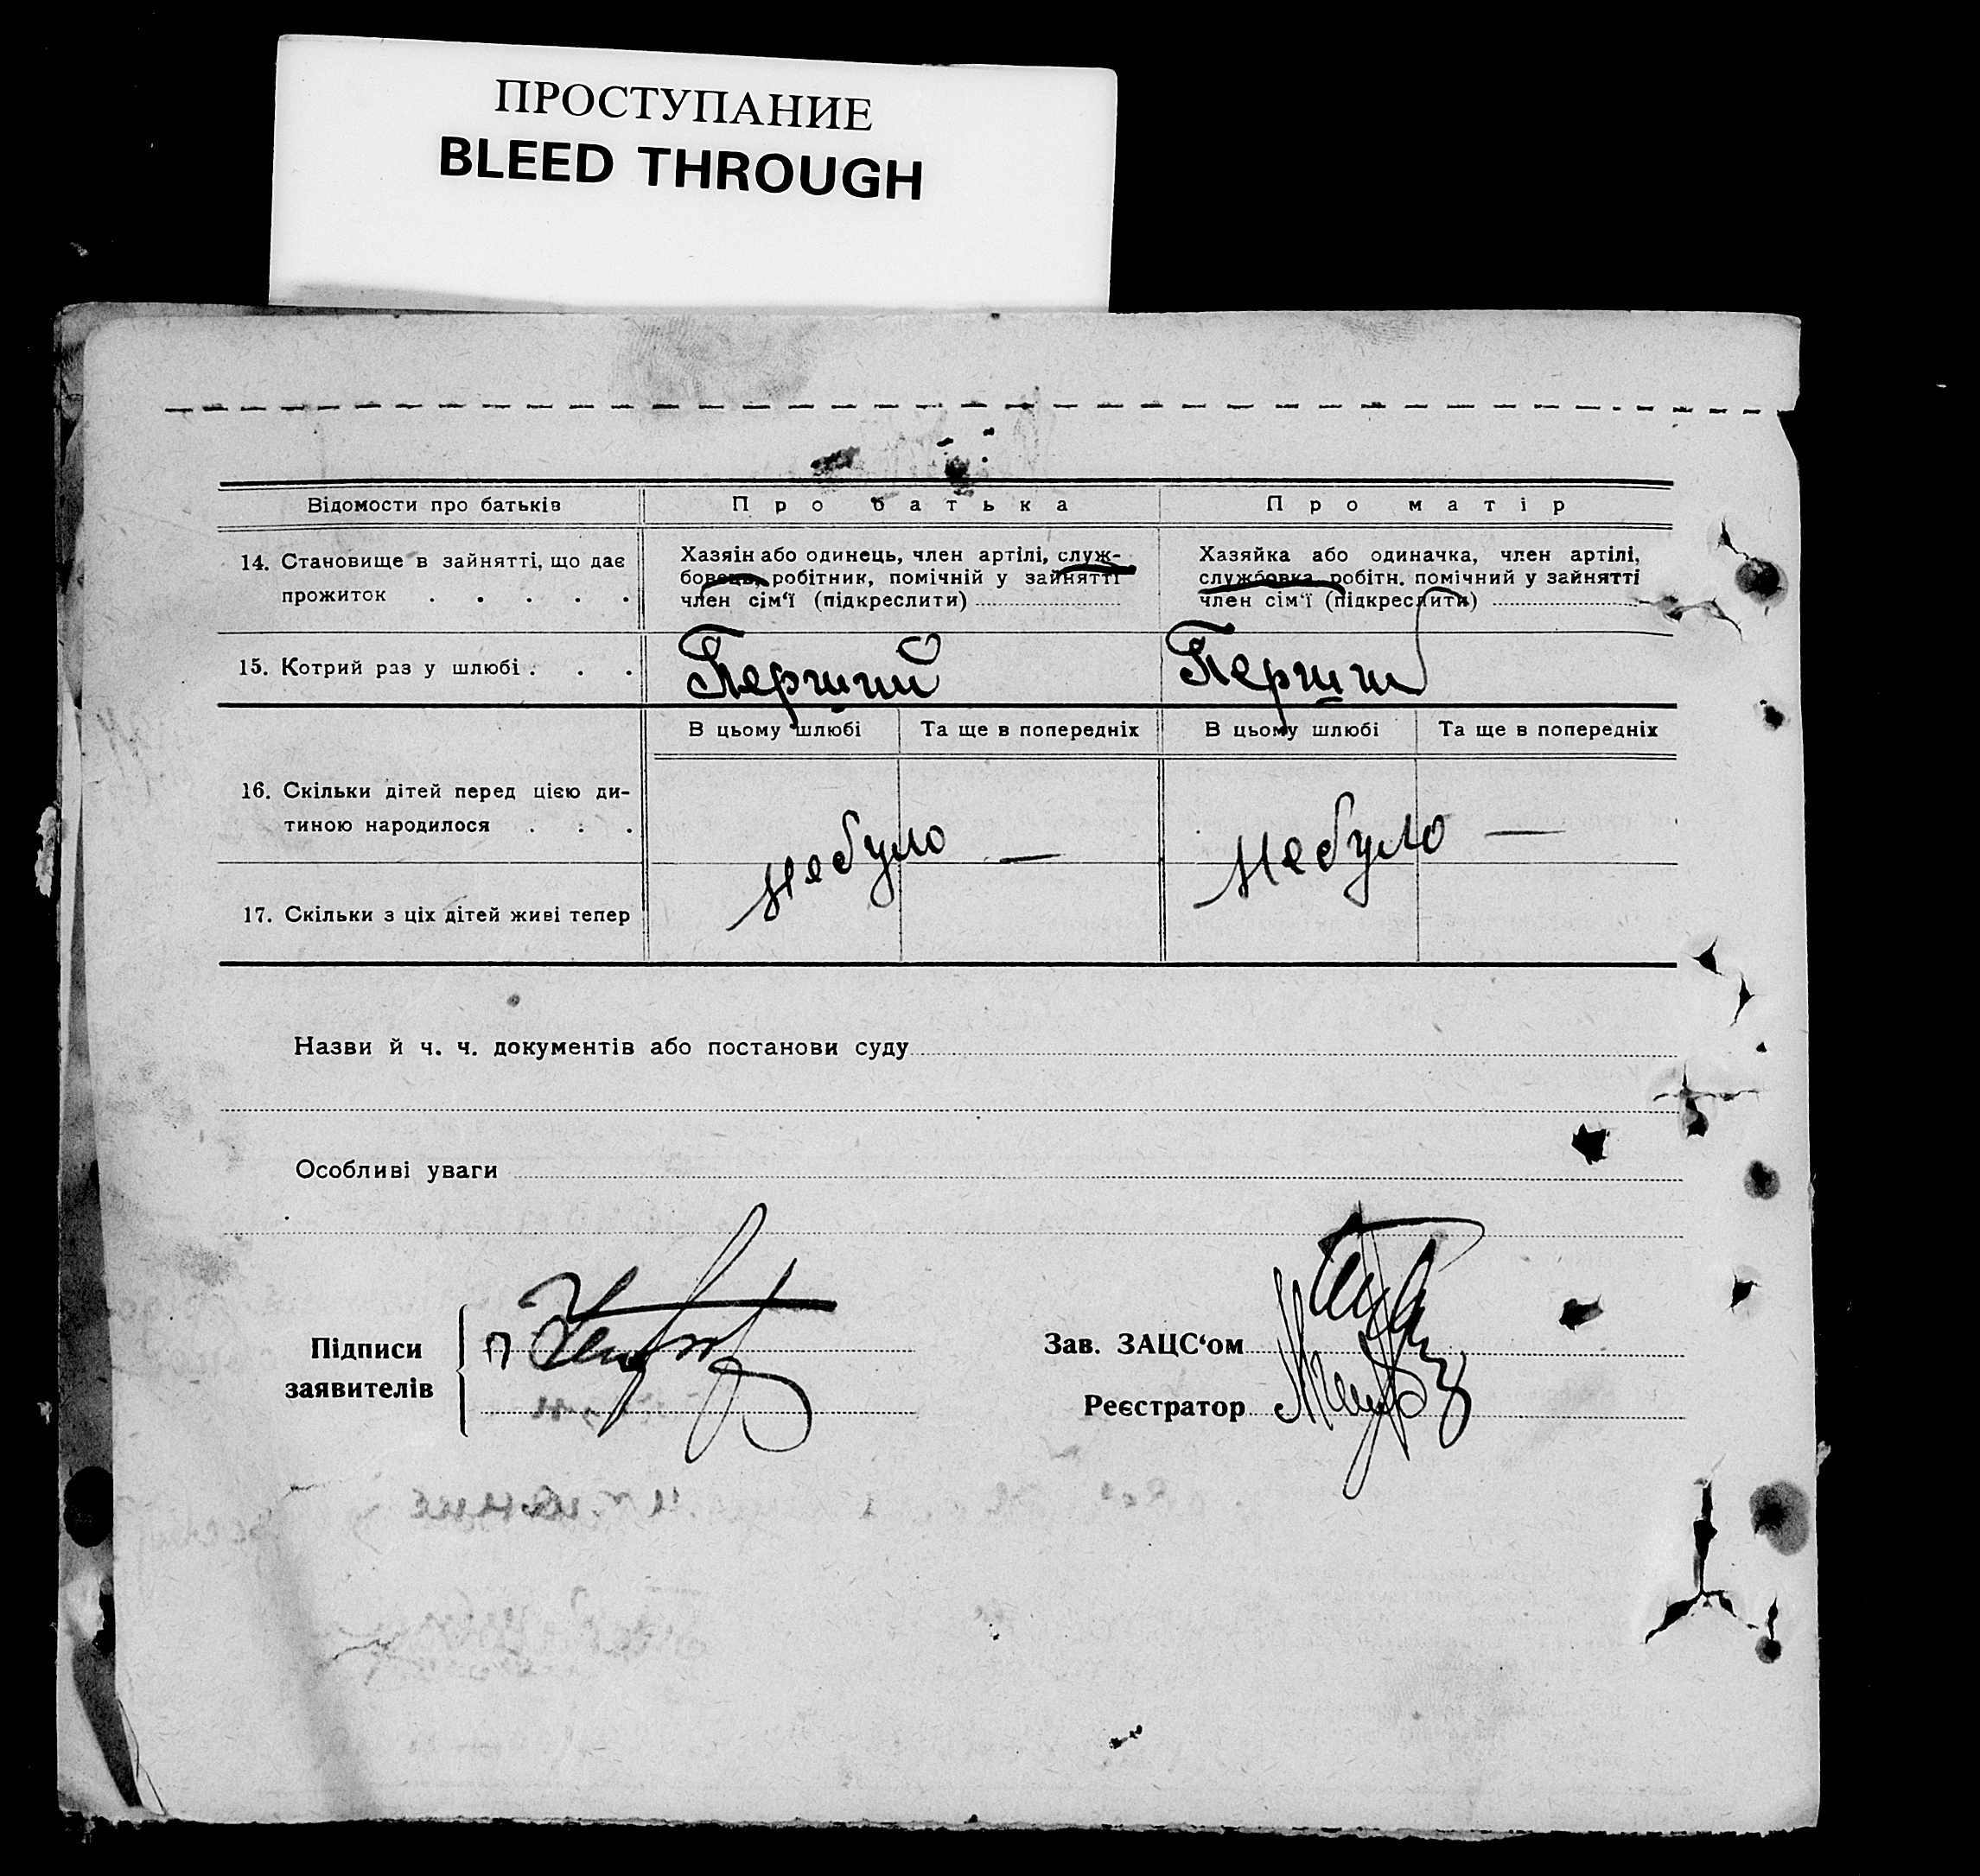 ПРОСТУПАНИЕ
BLEED THROUGH
Відомости про батьків
Про батька
Про матір
14. Становище в зайнятті, що дає
прожиток . . . . .
Хазяїн або одинець, член артілі, служ-
бовець, робітник, помічній у зайнятті
член сім‘ї (підкреслити)
Хазяйка або одиначка, член артілі,
службовка робітн. помічний у зайнятті
член сім‘ї (підкреслити)
15. Котрий раз у шлюбі . . .
Перший
Перший
В цьому шлюбі
Та ще в попередніх
В цьому шлюбі
Та ще в попередніх
16. Скільки дітей перед цією ди-
тиною народилося . . .
Небуло —
Небуло —
17. Скільки з ціх дітей живі тепер
Назви й ч. ч. документів або постанови суду
Особливі уваги
Підписи
заявителів
Зав. ЗАЦС‘ом
Реєстратор